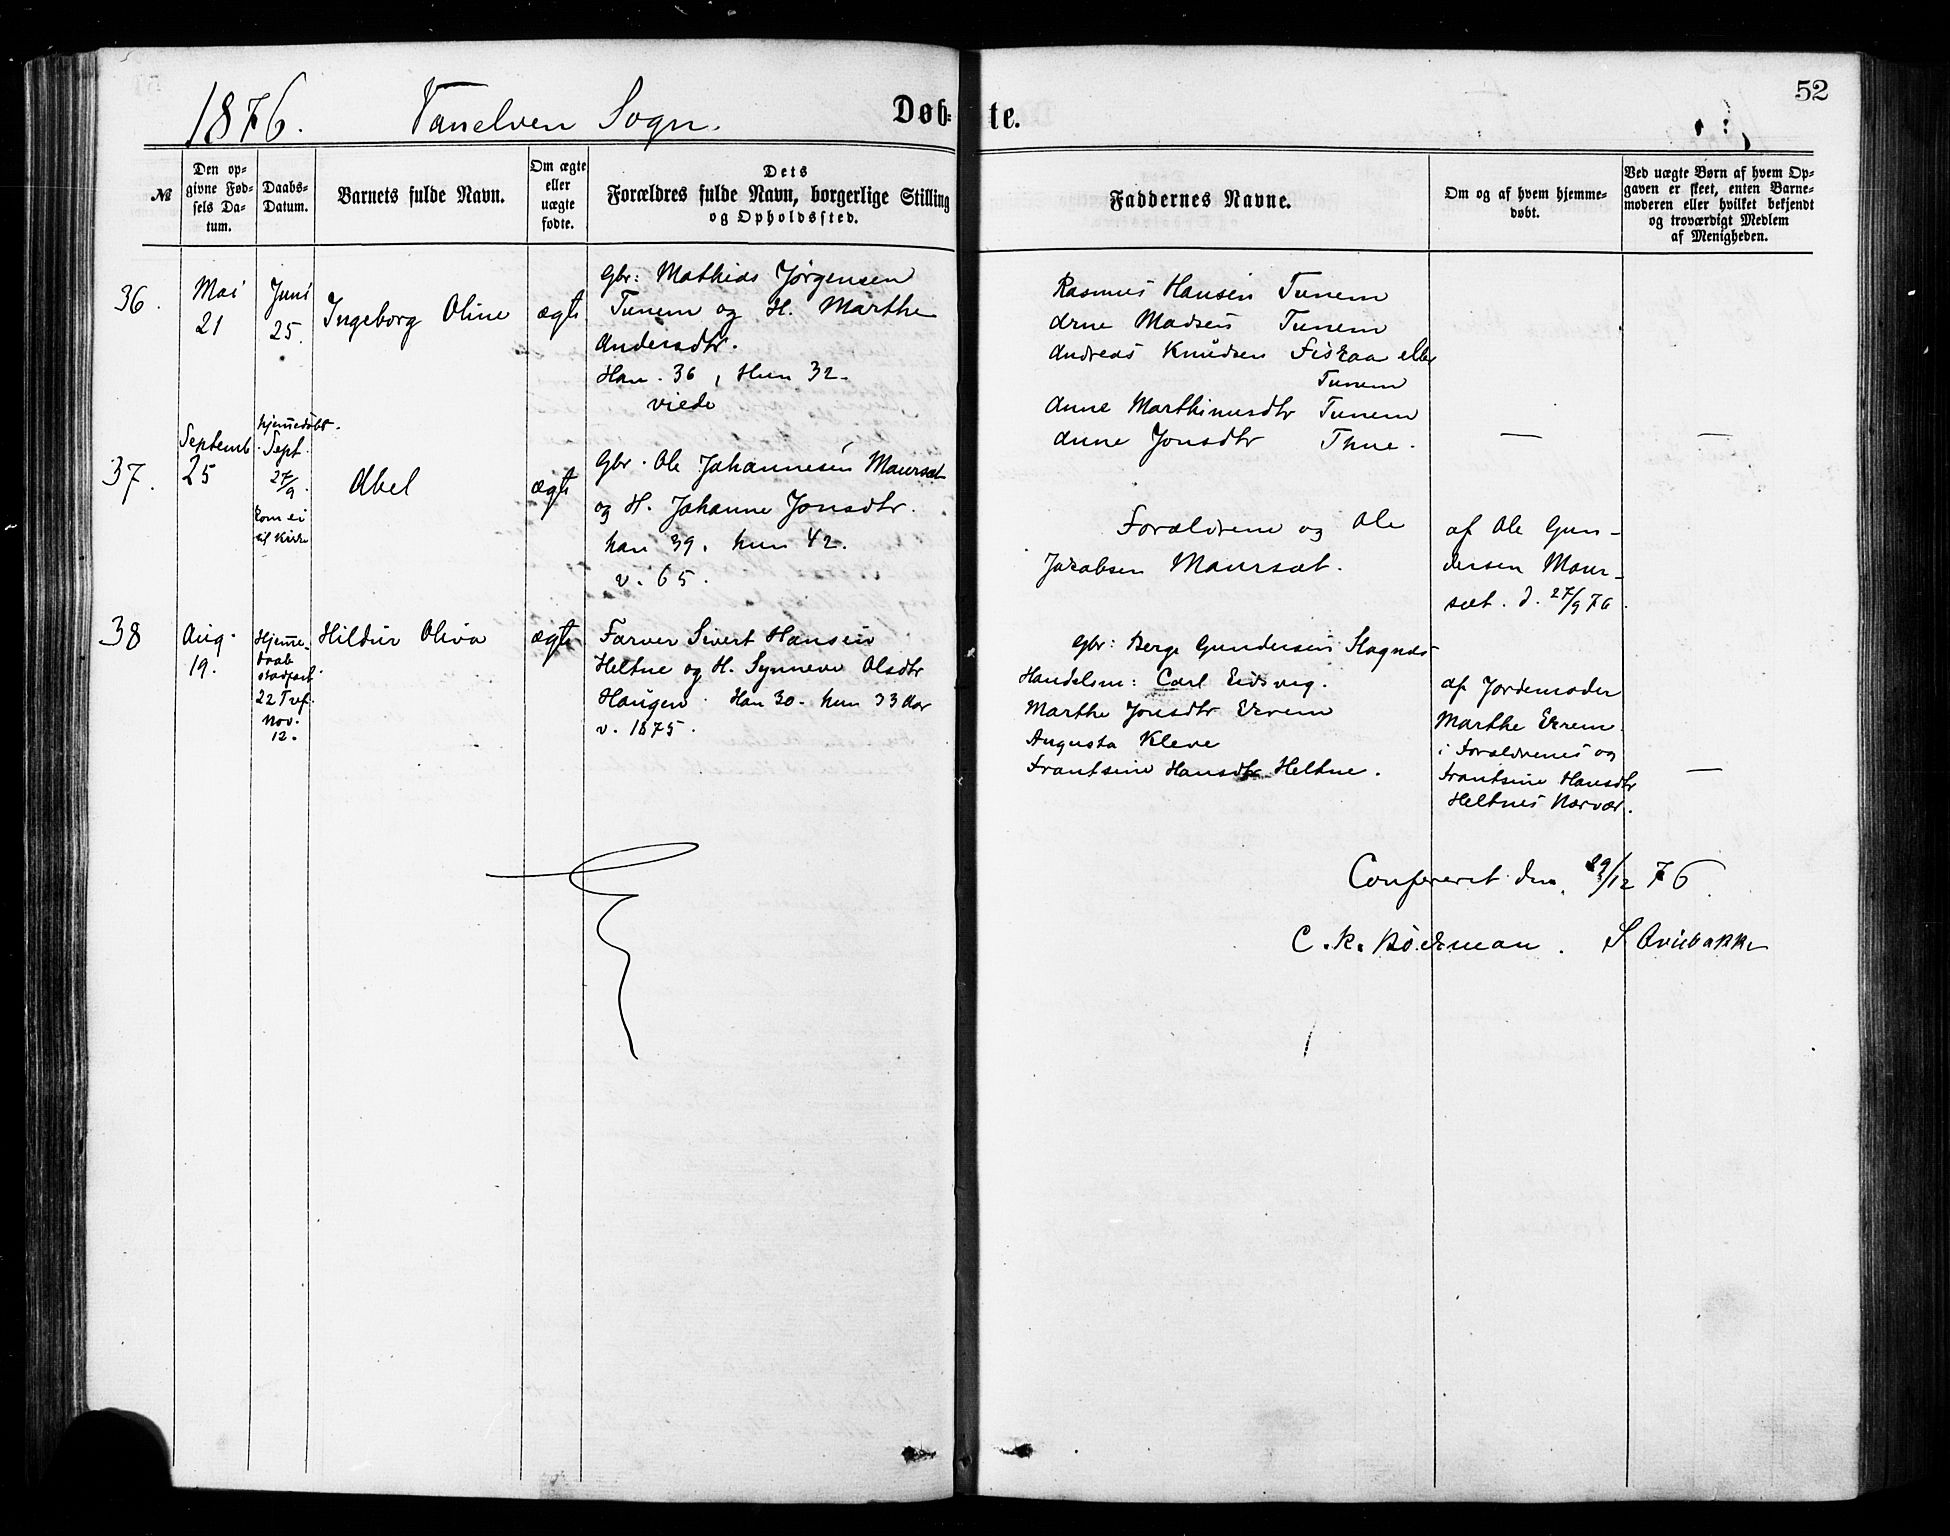 1876. Vanelven Sogn. Døb= te. 52
№
Den op-
givne Fød-
sels Da-
tum.
Daabs-
Datum.
Barnets fulde Navn.
Om ægte
eller
uægte
fødte.
Dets
Forældres fulde Navn, borgerlige Stilling
og Opholdssted.
Faddernes Navne.
Om og af hvem hjemme-
døbt.
Ved uægte Børn af hvem Op-
gaven er skeet, enten Barne-
moderen eller hvilket bekjendt
og troværdigt Medlem
af Menigheden.
36.
Mai
21
Juni
25.
Ingeborg Oline
ægte
Gbr: Mathias Jørgensen
Tunem og H. Marthe
Andersdtr.
Han. 36, Hun 32.
viede
Rasmus Hansen Tunem
Arne Madsen Tunem
Andreas Knudsen Fiskaa eller
Tunem
Anne Marthinusdtr Tunem
Anne Jonsdtr Thue.
—
—
37.
Septemb.
25
hjemmedøbt.
Sept.
27/9.
kom ei
til Kirke
Abel
ægte
Gbr. Ole Johannesen Maurset
og H. Johanne Jonsdtr.
han 39. hun 42.
v. 65.
Forældrene og Ole
Jakobsen Maursæt.
af Ole Gun-
dersen Maur-
sæt. d. 27/9 76.
38
Aug.
19.
Hjemme-
daab
stadfæst.
22 T ref.
Nov.
12.
Hildur Oliva
ægte
Farver Sivert Hansen
Heltne og H. Synneve Olsdtr
Haugen. Han 30. hun 33 Aar
v. 1875.
Gbr: Berge Gundersen Stagnæs
Handelsm: Carl Eidsvig.
Marthe Jonsdtr Ekrem
Augusta Kleve
Frantsine Hansdtr Heltne.
af Jordemoder
Marthe Ekrem
i Forældrenes og
Frantsine Hansdtr
Heltnes Nærvær.
—
Confereret den 29/12 76.
C. K. Böckman. S Qviebakke